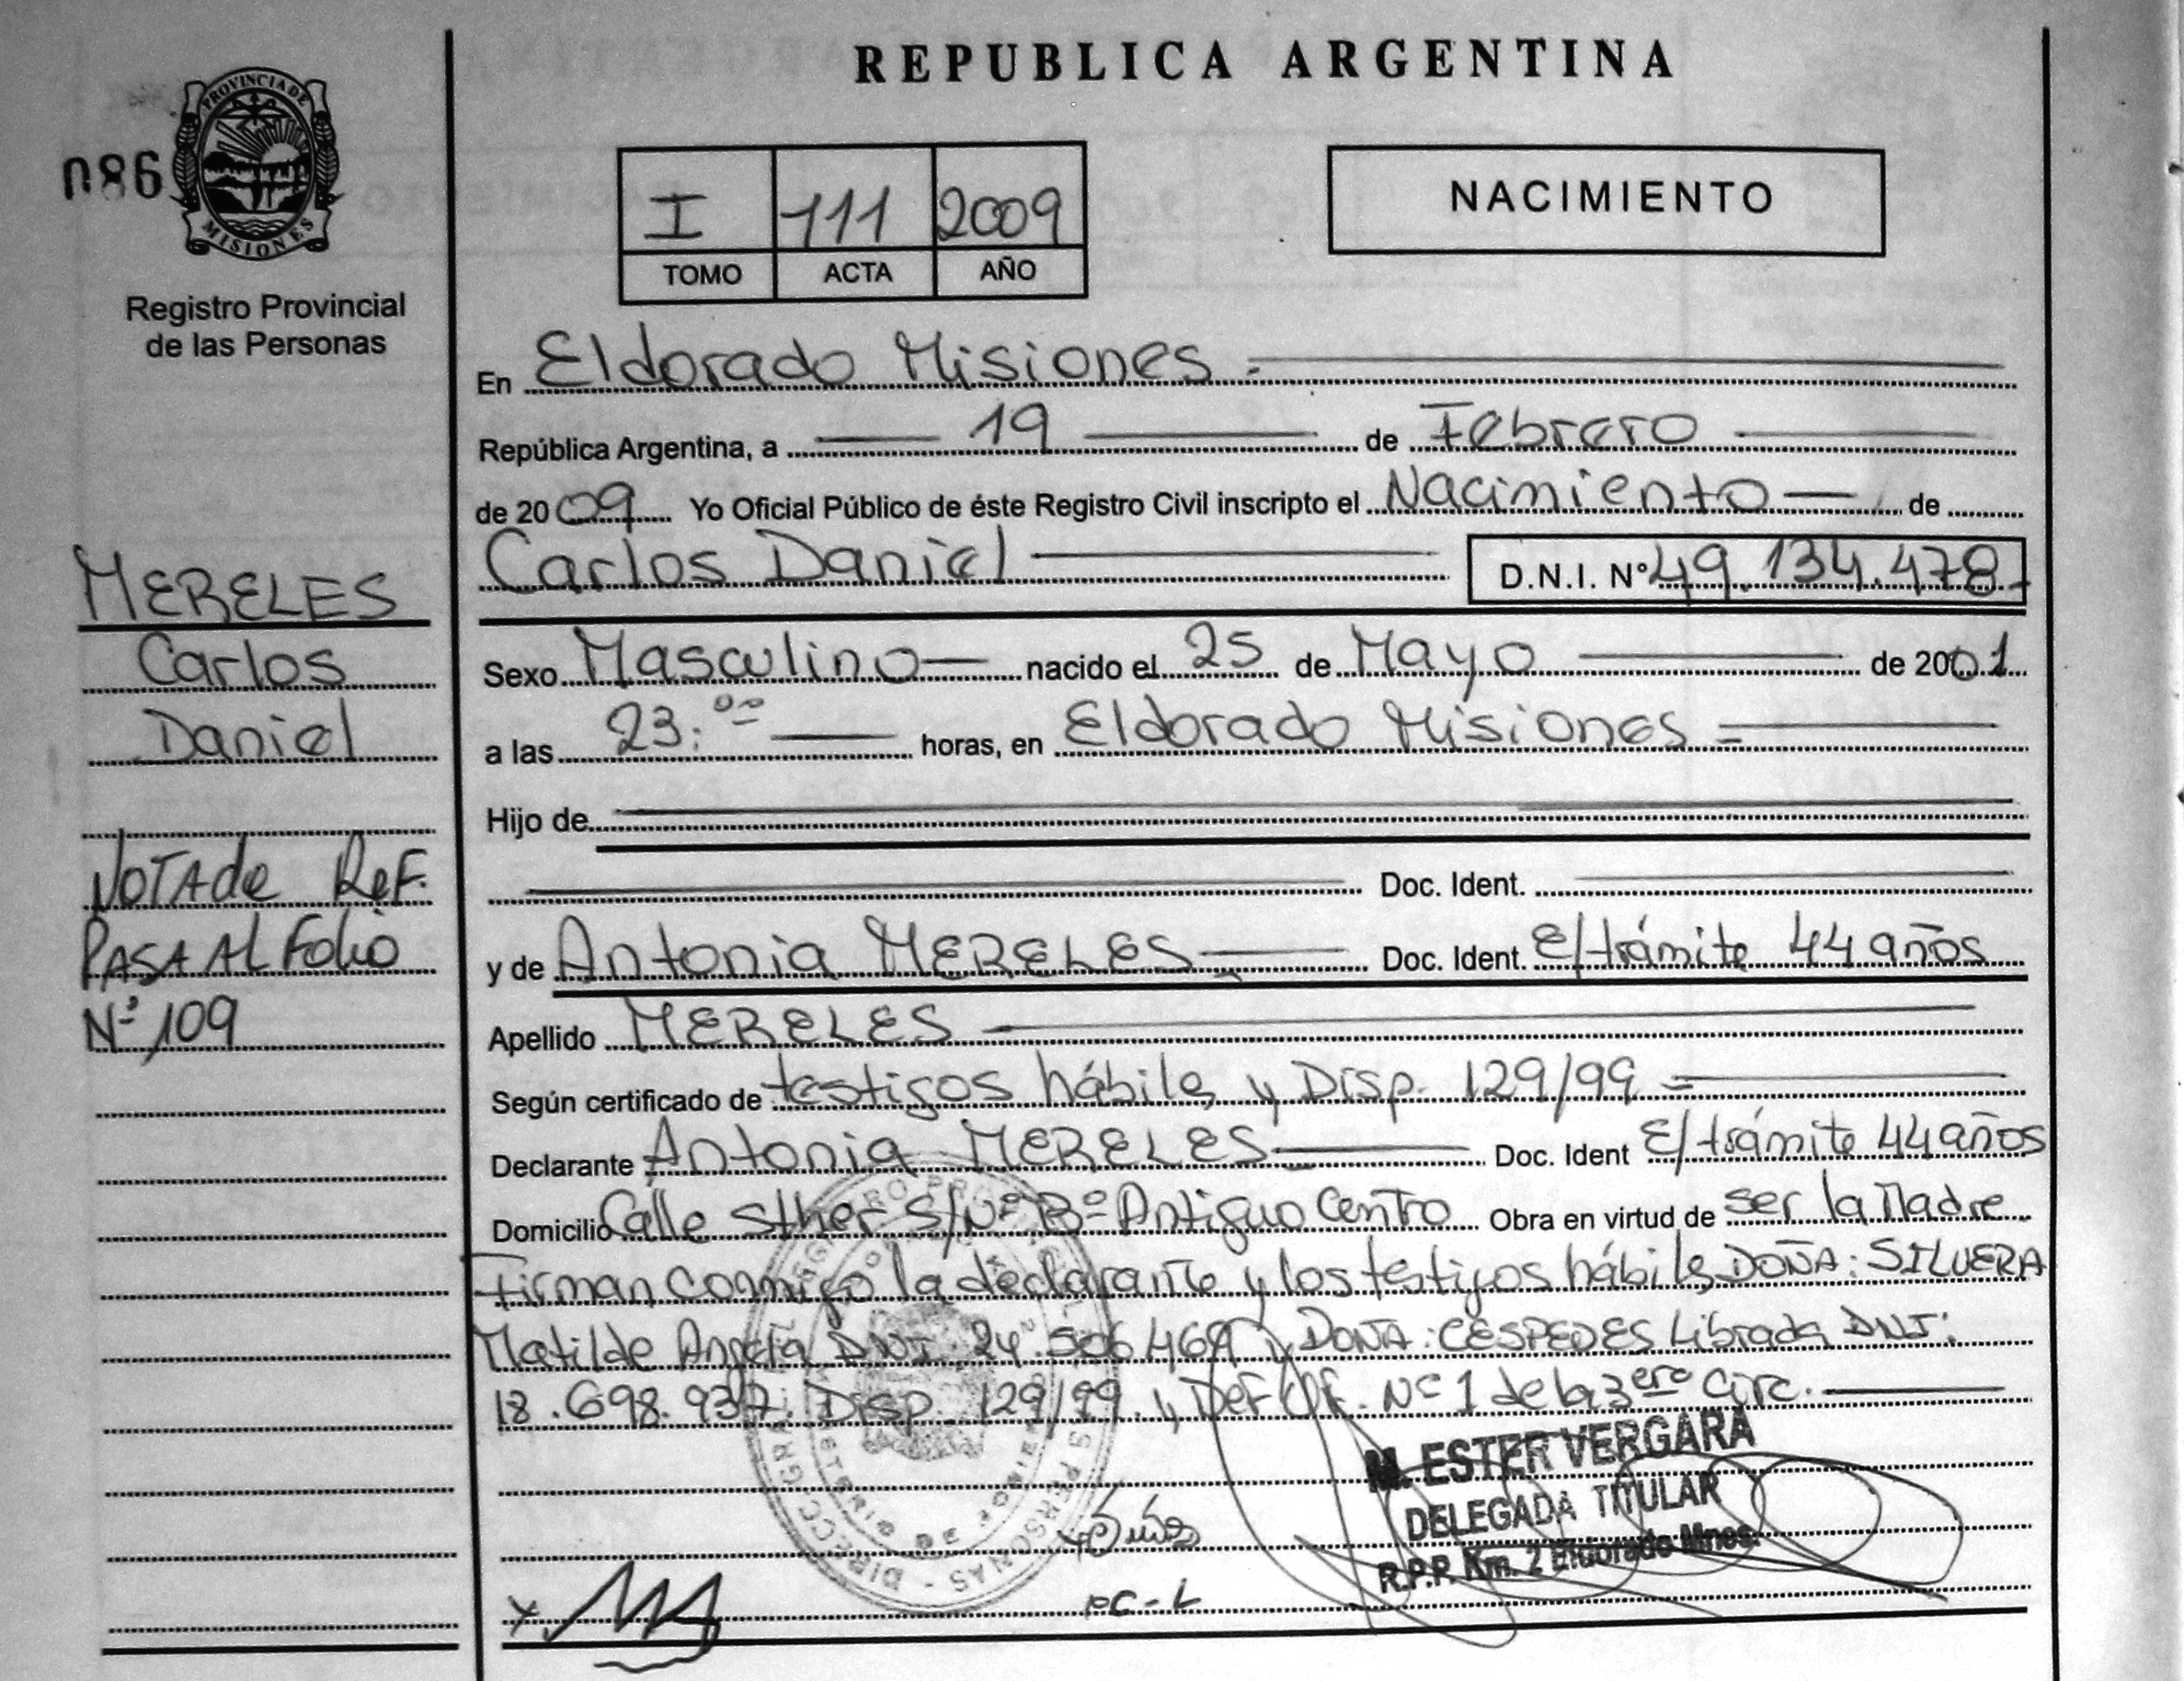 REPUBLICA ARGENTINA
PROVINCIA DE
MISIONES
086
Registro Provincial
de las Personas
I 111 2009
TOMO ACTA AÑO
NACIMIENTO
En Eldorado Misiones.
República Argentina, a 19 de Febrero
de 2009 Yo Oficial Público de éste Registro Civil inscripto el Nacimiento de
Carlos Daniel D.N.I. Nº 49.134.478.
Sexo Masculino nacido el 25 de Mayo de 2001
a las 23:00 horas, en Eldorado Misiones
Hijo de
Doc. Ident.
y de Antonia MERELES Doc. Ident. E/trámite 44 años
Apellido MERELES
Según certificado de testigos hábiles y Disp. 129/99
Declarante Antonia MERELES Doc. Ident E/trámite 44 años
Domicilio Calle Sther S/Nº Bº Antiguo Centro Obra en virtud de ser la Madre
Firman conmigo la declarante y los testigos hábiles DOÑA: SILVERA
Matilde DNI 24.506.469 y DOÑA: CESPEDES Librada DNI:
18.698.937. Disp. 129/99. y Def Of. Nº 1 de la 3era Circ.
MERELES
Carlos
Daniel
NOTA de Ref.
PASA AL Folio
Nº 109
M. ESTER VERGARA
DELEGADA TITULAR
R.P.P. Km. 2 Eldorado Mnes.
PC-L